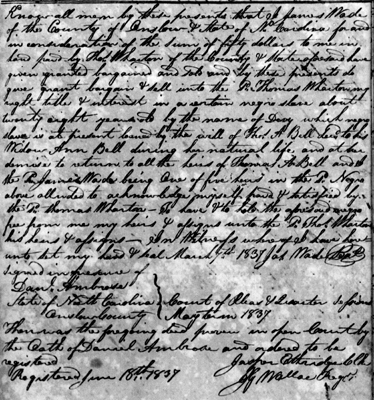 Know all men by these presents that I James Wade
of the County of Onslow & State of No Carolina for and
in consideration of the sum of fifty dollars to me in
hand paid by Thos Wharton of the County & State aforesaid have
given granted bargained and sold and by these presents do
give grant bargain & sell unto the Sd Thomas Wharton my
right title & interest in a certain negro slave about
twenty eight years old by the name of Davy which negro
slave is at present loaned by the will of Thos A Bell Decd to his
Widow Ann Bell during her natural life and at her
demise to return to all the heirs of Thomas A Bell and
the Sd James Wade being One of five heirs in the Sd Negro
above alluded to acknowledge myself paid & satisfied by
the Sd Thomas Wharton to have & to hold the aforesaid negro
free from me my heirs & assigns unto the Sd Thos Wharton
his heirs & assigns In Witness whereof I have here
unto set my hand & seal March 1837 Jas Wade Seal
Signed in presence of
Danl Ambrose
State of North Carolina Court of Pleas & Quarter Sessions
Onslow County May term 1837
Then was the foregoing deed proven in open Court by
the Oath of Daniel Ambrose and ordered to be
registered Jasper Etheridge Clk
Registered June 18th 1837 Wallace Regr